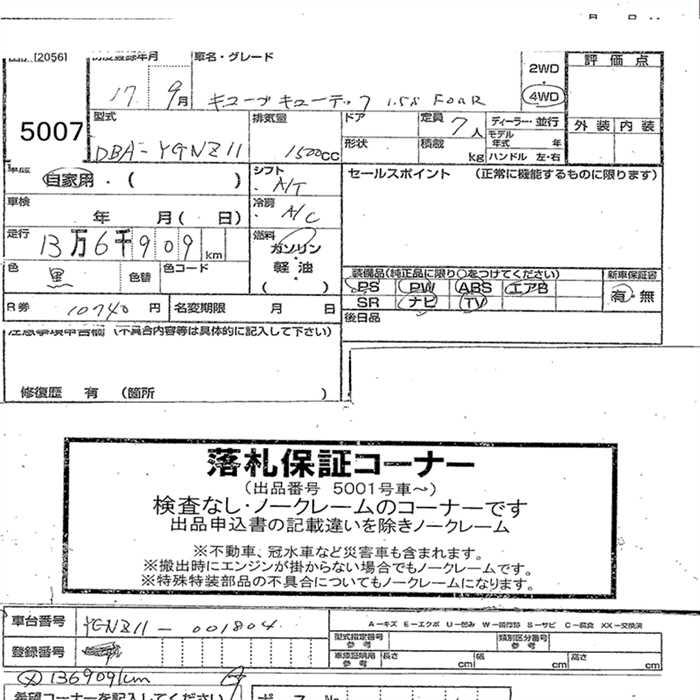 [2056]
初度登録年月 車名・グレード
17 9月 キューブキューティック 1.5S FOUR
2WD
4WD
評価点
外装 内装
5007
型式 DBA-YGNZ11
排気量 1500CC
ドア 形状
定員 7人
積載 kg
ディーラー・並行
モデル年式 年
ハンドル 左・右
車歴 自家用・( )
シフト A/T
セールスポイント (正常に機能するものに限ります)
車検 年 月( 日)
冷房 A/C
走行 13万6千909km
燃料 ガソリン・軽油 ( )
色 黒 色替 色コード
装備品(純正品に限り○をつけてください)
新車保証書
PS PW ABS エアB
有・無
SR ナビ TV
R券 10740円 名変期限 月 日
後日品
注意事項申告欄(不具合内容等は具体的に記入して下さい)
修復歴 有 (箇所 )
落札保証コーナー
(出品番号 5001号車~)
検査なし・ノークレームのコーナーです
出品申込書の記載違いを除きノークレーム
※不動車、冠水車など災害車も含まれます。
※搬出時にエンジンが掛からない場合でもノークレームです。
※特殊特装部品の不具合についてもノークレームになります。
車台番号 YGNZ11-001804
A-キズ E-エクボ U-凹み W-補修跡 S-サビ C-腐食 XX-交換済
登録番号
型式指定番号 参考
類別区分番号 参考
車検証明用 参考
長さ cm 幅 cm 高さ cm
136909km
希望コーナーを記入してください
ボス No